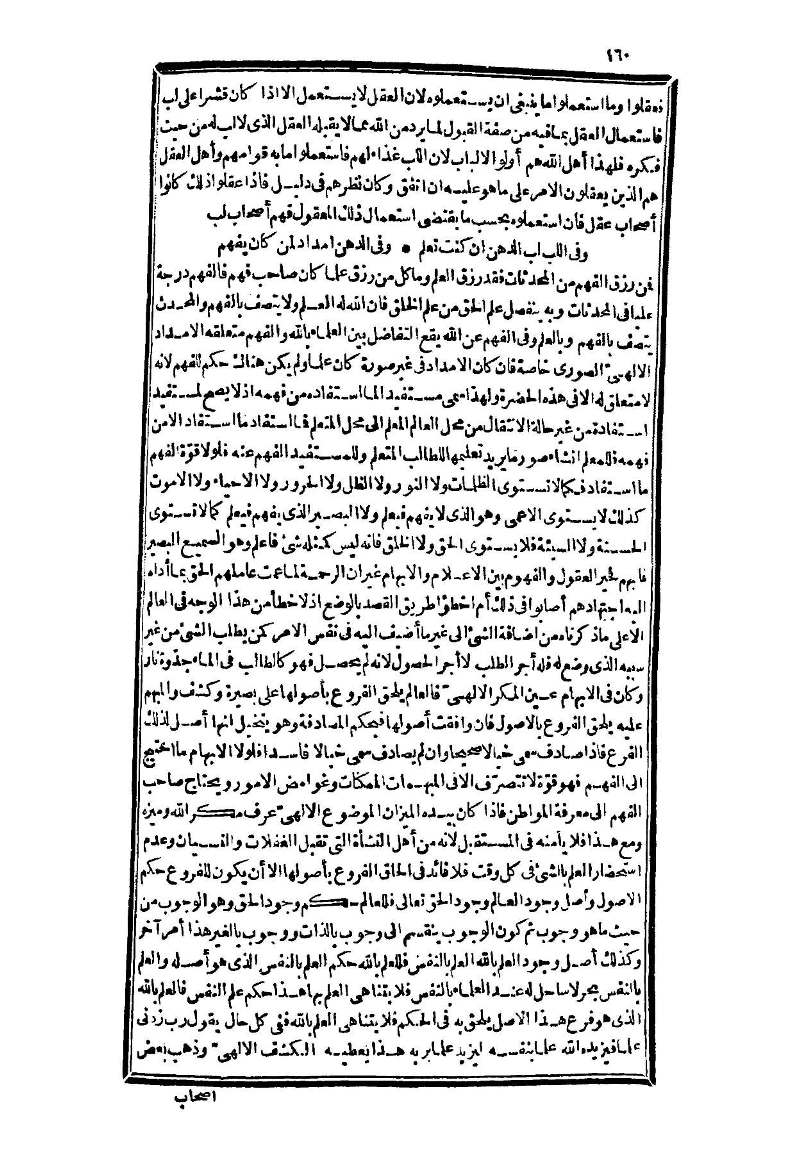 ١٦٠
فعقلوا وما استعملوا ما ينبغى ان يستعملوه لان العقل لا يستعمل الا اذا كان قشرا على لب
فاستعمال العقل بما فيه من صفة القبول لما يرد من الله مما لا يقبله العقل الذى لا لب له من حيث
فكره فلهذا أهل الله هم أولو الالباب لان اللب غذاء لهم فاستعملوا ما به قوامهم وأهل العقل
هم الذين يعقلون الامر على ما هو عليه ان اتفق وكان نظرهم فى دليل فاذا عقلوا ذلك كانوا
أصحاب عقل فان استعملوه بحسب ما يقتضى استعمال ذلك المعقول فهم أصحاب لب
وفى اللب اب الدهن ان كنت تعلم • وفى الدهن امداد لمن كان يفهم
فمن رزق الفهم من المحدثات فقد رزق العلم وما كل من رزق علما كان صاحب فهم فالفهم درجة
عليا فى المحدثات وبه ينفصل علم الحق من علم الخلق فان الله له العلم ولا يتصف بالفهم والمحدث
يتصف بالفهم وبالعلم وفى الفهم عن الله يقع التفاضل بين العلماء بالله والفهم متعلقه الامداد
الالهى الصورى خاصة فان كان الامداد فى غير صورة كان علما ولم يكن هناك حكم للفهم لانه
لا متعلق له الا فى هذه الحضرة ولهذا سمى مستفيد الما استفاده من فهمه اذ لا يصح لمستفيد
استفادة من غير حالة الانتقال من محل العالم المعلم الى محل المتعلم فما استفاد ما استفاد الا من
فهمه فللمعلم انشاء صور ما يريد تعليمها للطالب المتعلم وللمستفيد الفهم عنه فلولا قوة الفهم
ما استفاد فكما لا تستوى الظلمات ولا النور ولا الظل ولا الحرور ولا الاحياء ولا الاموت
كذلك لا يستوى الاعمى وهو الذى لا يفهم فيعلم ولا البصير الذى يفهم فيعلم كما لا تستوى
الحسنة ولا السيئة فلا يستوى الحق ولا الخلق فانه ليس كمثله شئ فاعلم وهو السميع البصير
فابهم فحير العقول والفهوم بين الاعلام والابهام غير ان الرحمة لما عمت عاملهم الحق بما أداه
اليه اجتهادهم أصابوا فى ذلك أم اخطؤا طريق القصد بالوضع اذ لا خطأ من هذا الوجه فى العالم
الا على ما ذكرناه من اضافة الشئ الى غير ما أضيف اليه فى نفس الامر كمن يطلب الشئ من غير
سببه الذى وضع له فله أجر الطلب لا أجر الحصول لانه لم يحصل فهو كالطالب فى الماء جذوة نار
وكان فى الابهام عين المكر الالهى فالعالم يلحق الفروع بأصولها على بصيرة وكشف والمبهم
عليه يلحق الفروع بالاصول فان وافقت أصولها فبحكم المصادفة وهو يتخيل انها أصل لذلك
الفرع فاذا صادف سمى خيالا صحيحا وان لم يصادف سمى خيالا فاسدا فلولا الابهام ما احتيج
الى الفهم فهو قوة لا تتصرف الا فى المبهمات الممكنات وغوامض الامور ويحتاج صاحب
الفهم الى معرفة المواطن فاذا كان بيده الميزان الموضوع الالهى عرف مكر الله وميزه
ومع هذا فلا يأمنه فى المستقبل لانه من أهل النشأة التى تقبل الغفلات والنسيان وعدم
استحضار العلم بالشئ فى كل وقت فلا فائد فى الحاق الفروع بأصولها الا أن يكون للفروع حكم
الاصول وأصل وجود العالم وجود الحق تعالى فللعالم حكم وجود الحق وهو الوجوب من
حيث ما هو وجوب ثم كون الوجوب ينقسم الى وجوب بالذات ووجوب بالغير هذا أمر آخر
وكذلك أصل وجود العلم بالله العلم بالنفس فللعلم بالله حكم العلم بالنفس الذى هو أصله والعلم
بالنفس بحر لا ساحل له عند العلماء بالنفس فلا يتناهى العلم بها هذا حكم علم النفس فالعلم بالله
الذى هو فرع هذا الاصل يلحق به فى الحكم فلا يتناهى العلم بالله ففى كل حال يقول رب زدنى
علما فيزيده الله علما بنفسه ليزيد علما بربه هذا يعطيه الكشف الالهى وذهب بعض
اصحاب